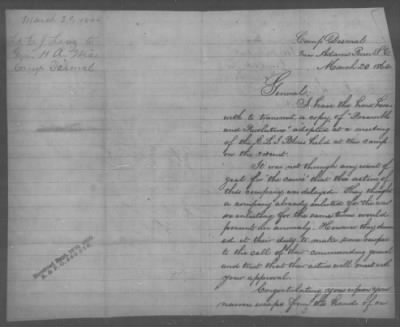 March 20, 1864
to
Gen. H. A. Wise
Camp Dasmal
Camp Dasmal
near Adams Run S. C.
March 20 1864
General
I have the honor here
with to transmit a copy of "Preamble
and Resolutions" adopted at a meeting
of the Blues held at this camp
on the
It was not through any want of
zeal for the cause that the action of
this company was delayed. They thought
a company already enlisted for the war
re enlisting for the same time would
present an anomaly. However they deem
ed it their duty to make some response
to the call of their commanding general
and trust that their action will meet with
your approval.
Congratulating you upon your
narrow escape from the hands of our